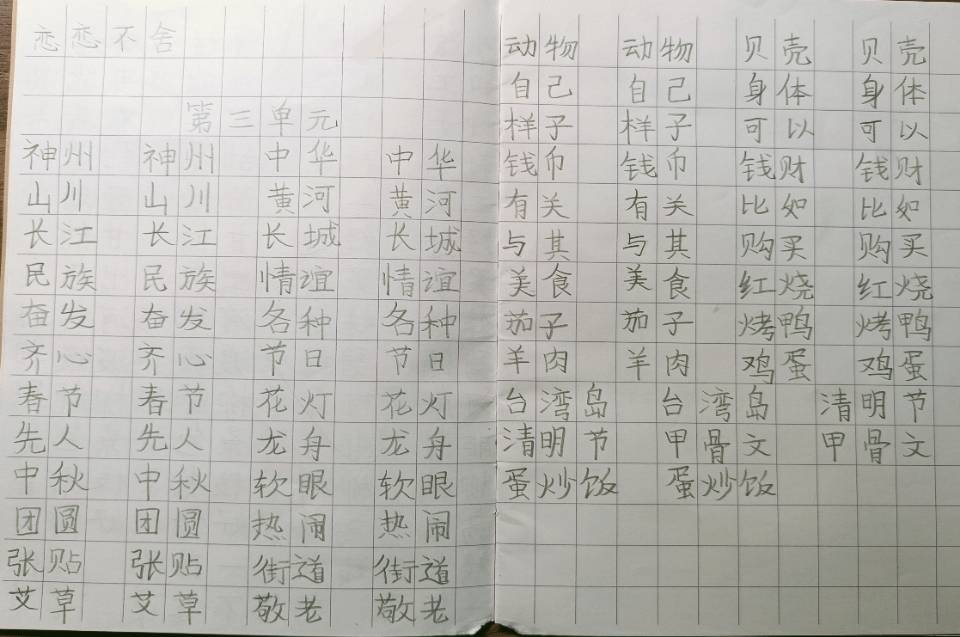 恋恋不舍
第三单元
神州 神州 中华 中华
山川 山川 黄河 黄河
长江 长江 长城 长城
民族 民族 情谊 情谊
奋发 奋发 各种 各种
齐心 齐心 节日 节日
春节 春节 花灯 花灯
先人 先人 龙舟 龙舟
中秋 中秋 软眼 软眼
团圆 团圆 热闹 热闹
张贴 张贴 街道 街道
艾草 艾草 敬老 敬老
动物 动物 贝壳 贝壳
自己 自己 身体 身体
样子 样子 可以 可以
钱币 钱币 钱财 钱财
有关 有关 比如 比如
与其 与其 购买 购买
美食 美食 红烧 红烧
茄子 茄子 烤鸭 烤鸭
羊肉 羊肉 鸡蛋 鸡蛋
台湾岛 台湾岛 清明节
清明节 甲骨文 甲骨文
蛋炒饭 蛋炒饭